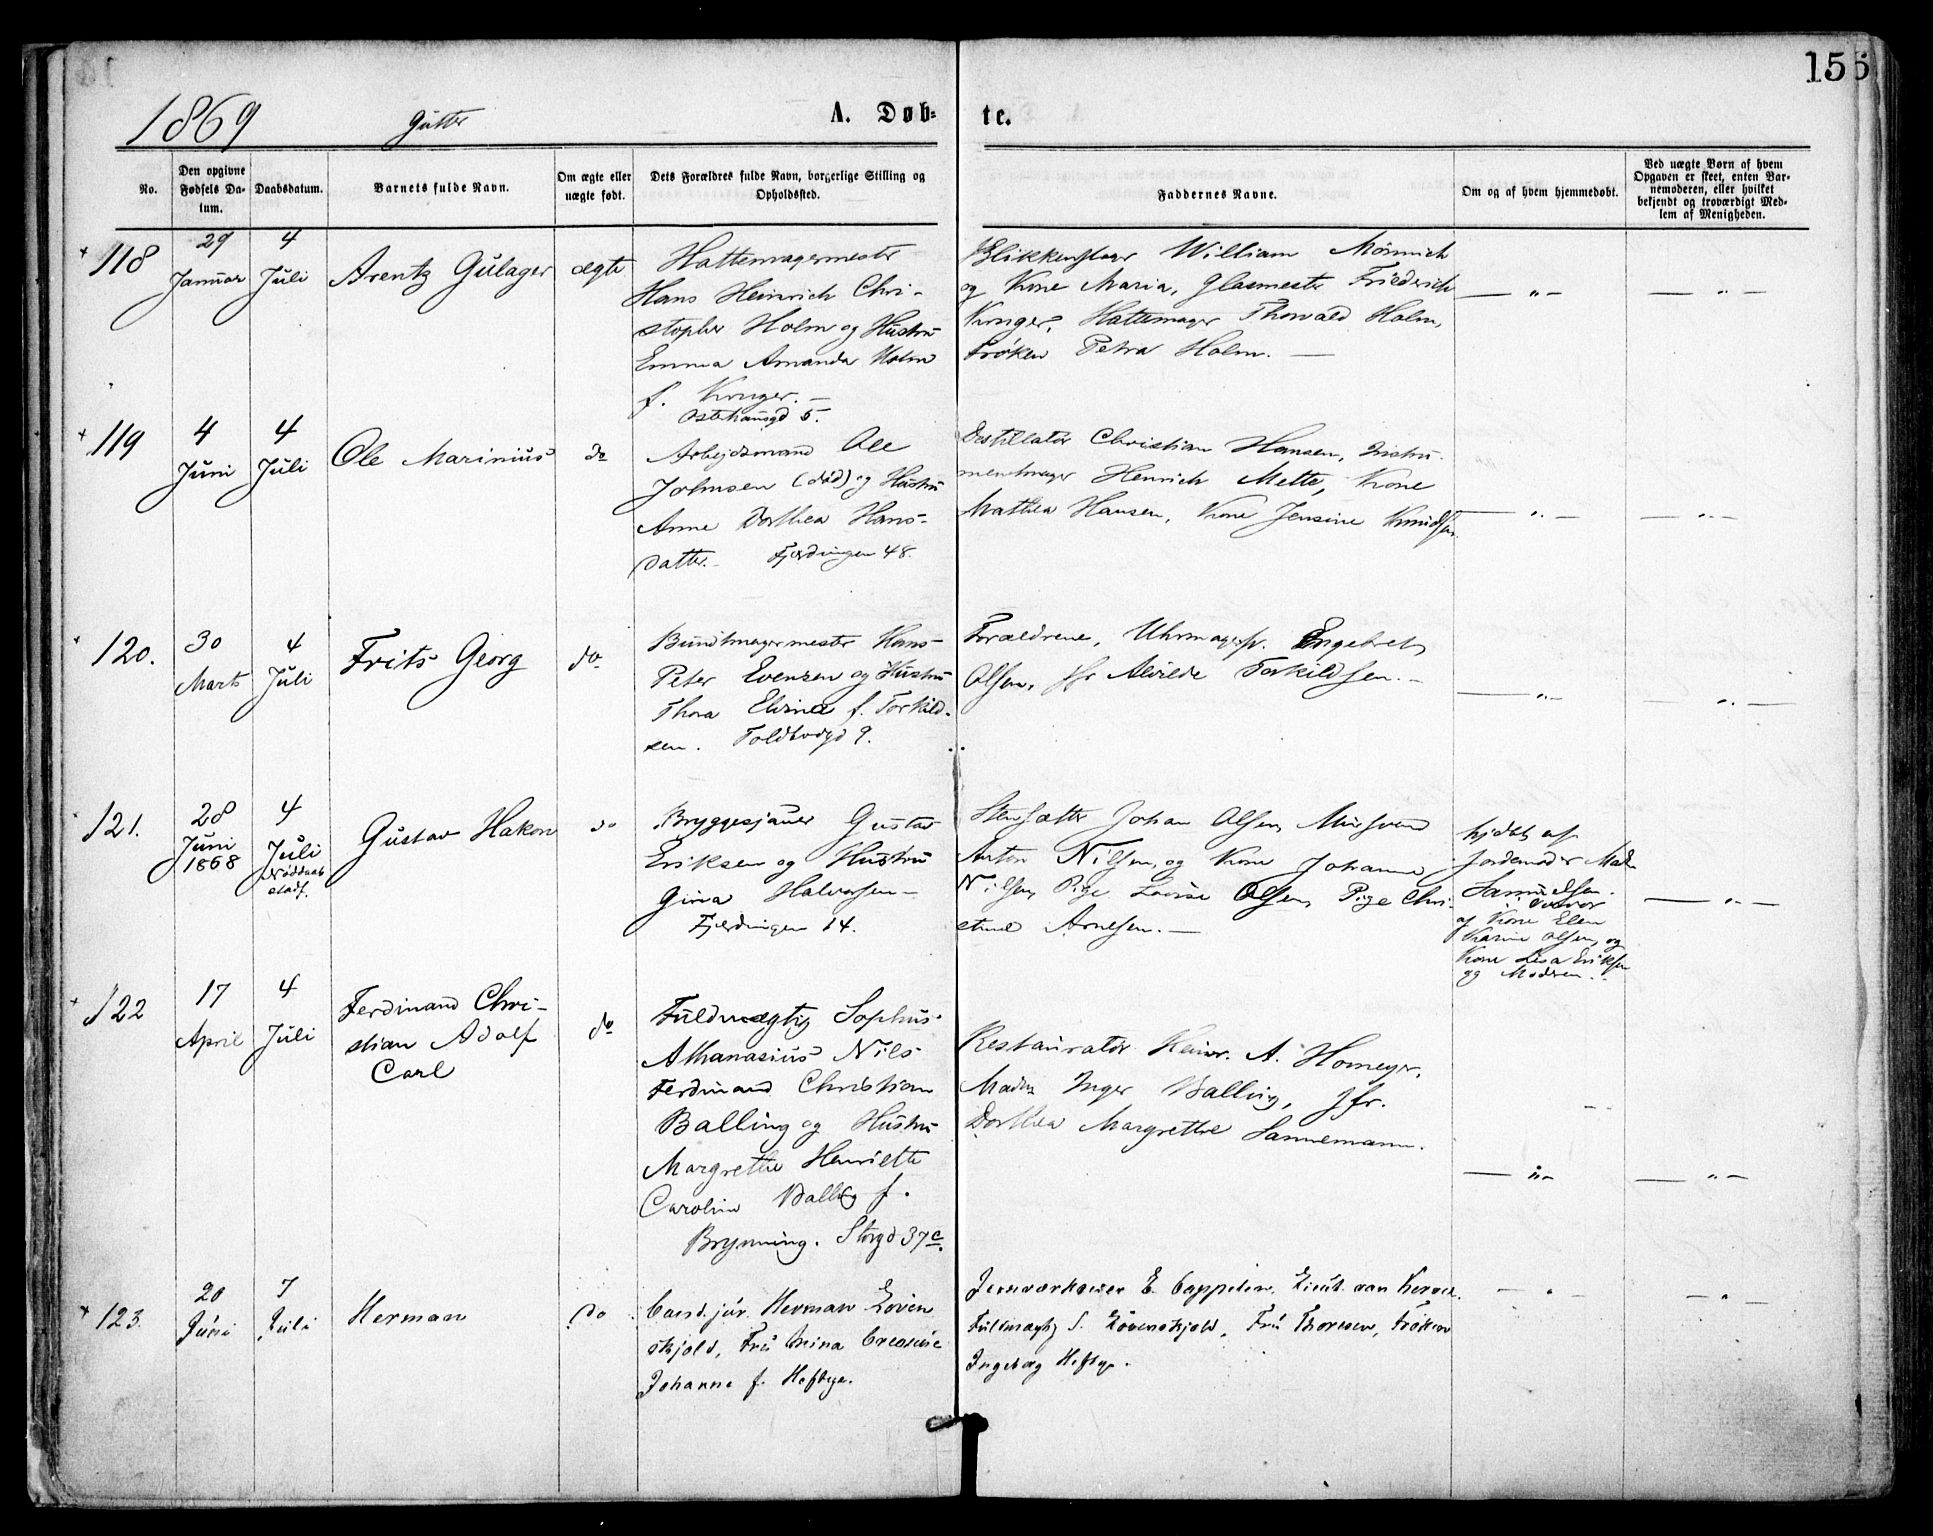 15
1869 Gutter A. Døb= te.
No.
Den opgivne Fødsels Da-tum.
Daabsdatum.
Barnets fulde Navn.
Om ægte eller uægte født.
Dets Forældres fulde Navn, borgerlige Stilling og Opholdssted.
Faddernes Navne.
Om og af hvem hjemmedøbt.
Ved uægte Børn af hvem Opgaven er skeet, enten Bar-nemoderen, eller hvilket bekjendt og troværdigt Med-lem af Menigheden.
118
29 Januar
4 Juli
Arentz Gulager
ægte
Hattemagermester
Hans Heinrich Chri-
stopher Holm og Hustru
Emma Amanda Holm
f. Kruger. –
Østehausgd 5.
Blikkenslager William Mönnich
og Kone Maria, Glasmester Friederich
Kruger, Hattemager Thorvald Holm,
Frøken Petra Holm. —
— „ —
— „ —
119
4 Juni
4 Juli
Ole Marinius
do
Arbejdsmand Ole
Johnsen (død) og Hustru
Anne Dorthea Hans-
datter. Fjerdingen 48.
Destillatør Christian Hansen, Instru-
mentmager Henrich Mette, Kone
Mathea Hansen, Kone Jensine Knudsen.
— „ —
— „ —
120.
30 Marts
4 Juli
Frits Georg
do
Bundtmagermester Hans
Peter Evensen og Hustru
Thora Elvine f. Torkild-
sen. Toldbodgd 9.
Forældrene, Uhrmager Engebret
Olsen, Jfr Alvilde Torkildsen. –
— „ —
— „ —
121.
28 Juni 1868
4 Juli
Nøddaab stadf.
Gustav Hakon
do
Bryggesjauer Gustav
Eriksen og Hustru
Gina Halvorsen –
Fjerdingen 14.
Stensætter Johan Olsen, Mursvend
Anton Nilsen, og Kone Johanne
Nilsen, Pige Lovise Olsen, Pige Chri-
stine Arnesen. —
hjdøbt af
Jordemoder Mad.
Samuelsen.
af Kone Elen
Karine Olsen, og
Kone Lisa Eriksen
og Modren.
— „ —
122
17 April
4 Juli
Ferdinand Chri-
stian Adolf
Carl
do
Fuldmægtig Sophus
Athanasius Nils
Ferdinand Christian
Balling og Hustru
Margrethe Henriette
Caroline Balling f.
Brynning. Storgd 37c.
Restauratør Heinr. A. Homeyer,
Madm Inger Balling, Jfr.
Dorthea Margrethe Sannemann.
— „ —
— „ —
123.
20 Juni
7 Juli
Herman
do
Cand. jur. Herman Löven
skjold, Fru Mina
Johanne f. Heftye.
Jernværkseier E. Cappelen. Lieut. van Kervel.
Fuldmægtg S. Lövenskjold, Fru Thoresen, Frøken
Ingeborg Heftye.
— „ —
— „ —